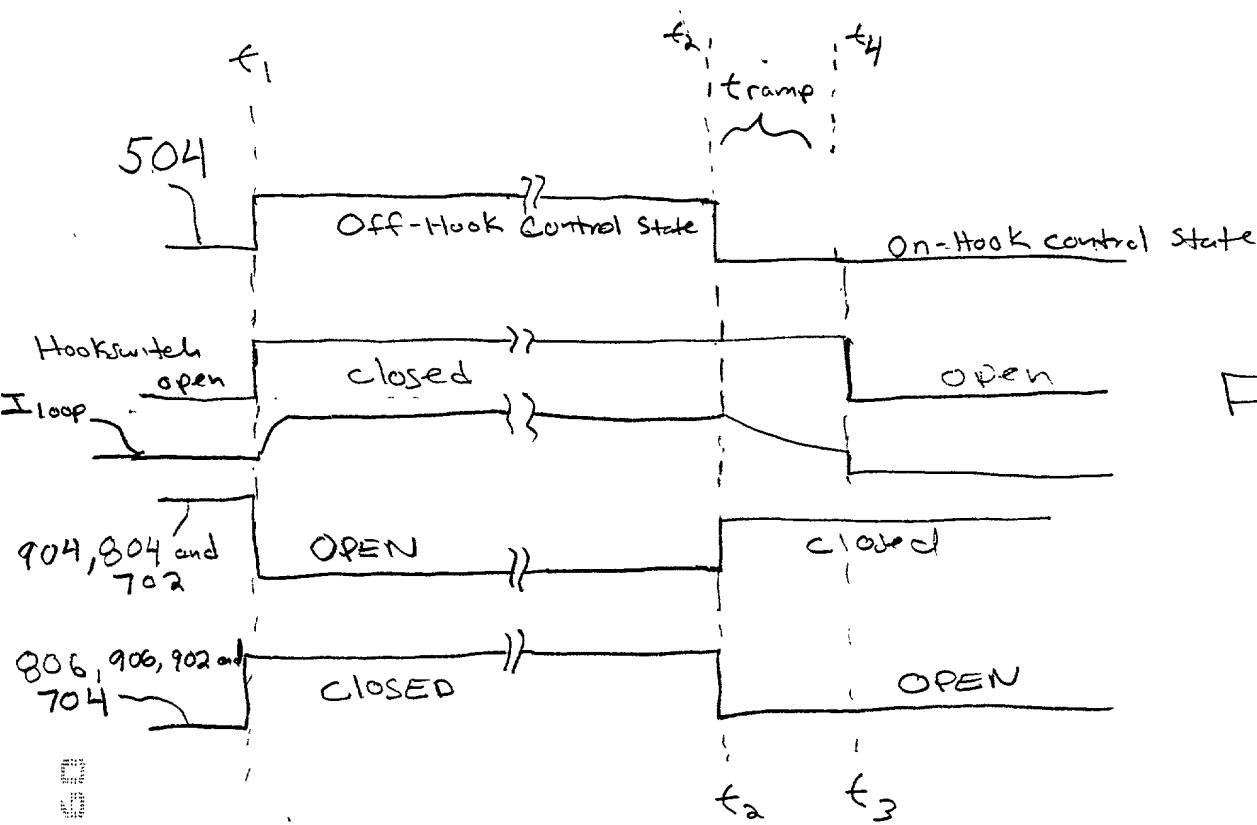 t1
t2
t4
tramp
504
Off-Hook Control State
On-Hook control State
Hookswitch
open
closed
open
Iloop
904, 804 and
702
OPEN
closed
806, 906, 902 and
704
CLOSED
OPEN
t2
t3